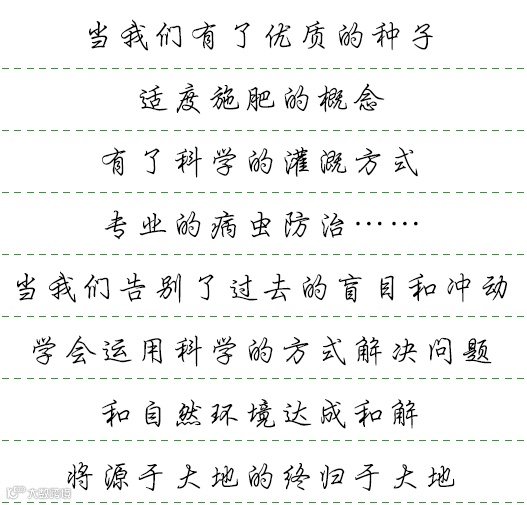 当我们有了优质的种子
适度施肥的概念
有了科学的灌溉方式
专业的病虫防治……
当我们告别了过去的盲目和冲动
学会运用科学的方式解决问题
和自然环境达成和解
将源于大地的终归于大地